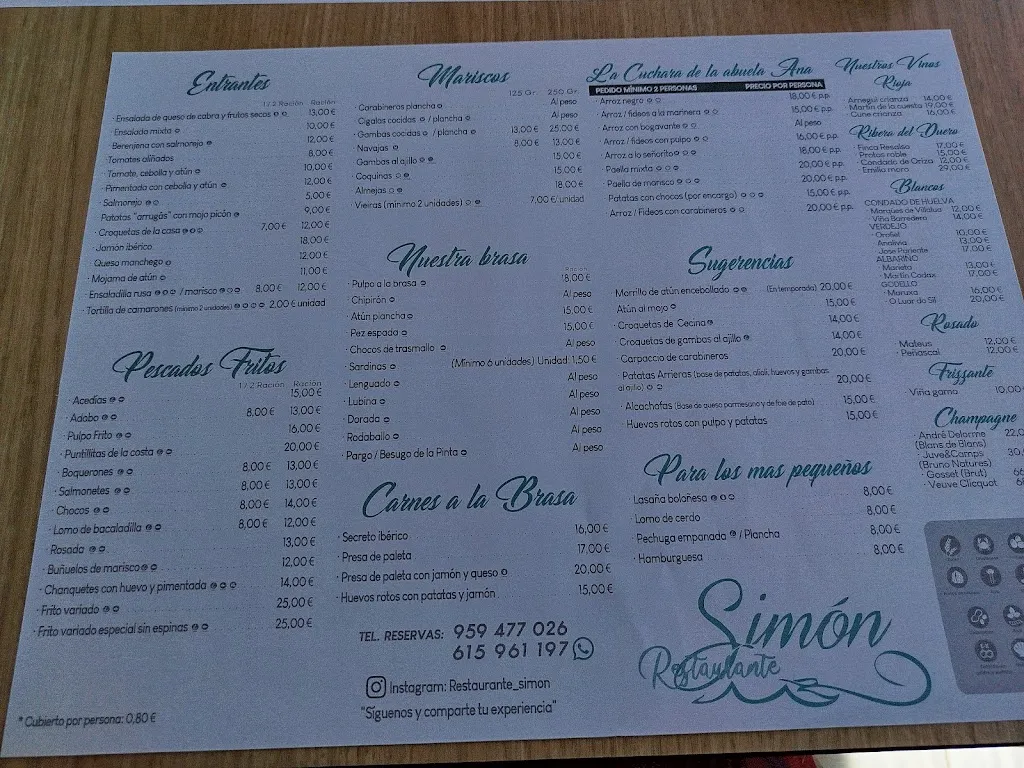 Entrantes
1/2 Ración Ración
· Ensalada de queso de cabra y frutos secos 13,00 €
· Ensalada mixta 10,00 €
· Berenjena con salmorejo 12,00 €
· Tomates aliñados 8,00 €
· Tomate, cebolla y atún 10,00 €
· Pimentada con cebolla y atún 12,00 €
· Salmorejo 5,00 €
· Patatas "arrugás" con mojo picón 9,00 €
· Croquetas de la casa 7,00 € 12,00 €
· Jamón ibérico 18,00 €
· Queso manchego 12,00 €
· Mojama de atún 11,00 €
· Ensaladilla rusa / marisco 8,00 € 12,00 €
· Tortilla de camarones (mínimo 2 unidades) 2,00 € unidad
Pescados Fritos
1/2 Ración Ración
· Acedías 15,00 €
· Adobo 8,00 € 13,00 €
· Pulpo Frito 16,00 €
· Puntillitas de la costa 20,00 €
· Boquerones 8,00 € 13,00 €
· Salmonetes 8,00 € 13,00 €
· Chocos 8,00 € 14,00 €
· Lomo de bacaladilla 8,00 € 12,00 €
· Rosada 13,00 €
· Buñuelos de marisco 12,00 €
· Chanquetes con huevo y pimentada 14,00 €
· Frito variado 25,00 €
· Frito variado especial sin espinas 25,00 €
* Cubierto por persona: 0,80 €
Mariscos
125 Gr. 250 Gr.
· Carabineros plancha Al peso
· Cigalas cocidas / plancha Al peso
· Gambas cocidas / plancha 13,00 € 25,00 €
· Navajas 8,00 € 13,00 €
· Gambas al ajillo 15,00 €
· Coquinas 15,00 €
· Almejas 18,00 €
· Vieiras (mínimo 2 unidades) 7,00 €/unidad
Nuestra brasa
Ración
· Pulpo a la brasa 18,00 €
· Chipirón Al peso
· Atún plancha 15,00 €
· Pez espada 15,00 €
· Chocos de trasmallo Al peso
· Sardinas (Mínimo 6 unidades) Unidad: 1,50 €
· Lenguado Al peso
· Lubina Al peso
· Dorada Al peso
· Rodaballo Al peso
· Pargo / Besugo de la Pinta Al peso
Carnes a la Brasa
· Secreto ibérico 16,00 €
· Presa de paleta 17,00 €
· Presa de paleta con jamón y queso 20,00 €
· Huevos rotos con patatas y jamón 15,00 €
TEL. RESERVAS: 959 477 026
615 961 197
Instagram: Restaurante_simon
"Síguenos y comparte tu experiencia"
La Cuchara de la abuela Ana
PEDIDO MÍNIMO 2 PERSONAS PRECIO POR PERSONA
· Arroz negro 18,00 € p.p.
· Arroz / fideos a la marinera 15,00 € p.p.
· Arroz con bogavante Al peso
· Arroz / fideos con pulpo 16,00 € p.p.
· Arroz a lo señorito 18,00 € p.p.
· Paella mixta 20,00 € p.p.
· Paella de marisco 20,00 € p.p.
· Patatas con chocos (por encargo) 15,00 € p.p.
· Arroz / Fideos con carabineros 20,00 € p.p.
Sugerencias
· Morrillo de atún encebollado (En temporada) 20,00 €
· Atún al mojo 15,00 €
· Croquetas de Cecina 14,00 €
· Croquetas de gambas al ajillo 14,00 €
· Carpaccio de carabineros 20,00 €
· Patatas Arrieras (base de patatas, alioli, huevos y gambas
al ajillo) 20,00 €
· Alcachofas (Base de queso parmesano y de foie de pato) 15,00 €
· Huevos rotos con pulpo y patatas 15,00 €
Para los mas pequeños
· Lasaña boloñesa 8,00 €
· Lomo de cerdo 8,00 €
· Pechuga empanada / Plancha 8,00 €
· Hamburguesa 8,00 €
Simón
Restaurante
Nuestros Vinos
Rioja
· Arnegui crianza 14,00 €
· Martín de la cuesta 19,00 €
· Cune crianza 16,00 €
Ribera del Duero
· Finca Resalso 17,00 €
· Protos roble 15,00 €
· Condado de Oriza 12,00 €
· Emilio moro 29,00 €
Blancos
CONDADO DE HUELVA
· Marques de Villalua 12,00 €
· Viña Barredero 14,00 €
VERDEJO
· Orofiel 10,00 €
· Analivia 13,00 €
· Jose Pariente 17,00 €
ALBARIÑO
· Marieta 13,00 €
· Martín Codax 17,00 €
GODELLO
· Maruxa 16,00 €
· O Luar do Sil 20,00 €
Rosado
· Mateus 12,00 €
· Peñascal 12,00 €
Frizzante
· Viña gamo 10,00
Champagne
· André Delorme 22,0
(Blans de Blans)
· Juve&Camps 30,
(Bruno Natures)
· Gosset (Brut)
· Veuve Clicquot